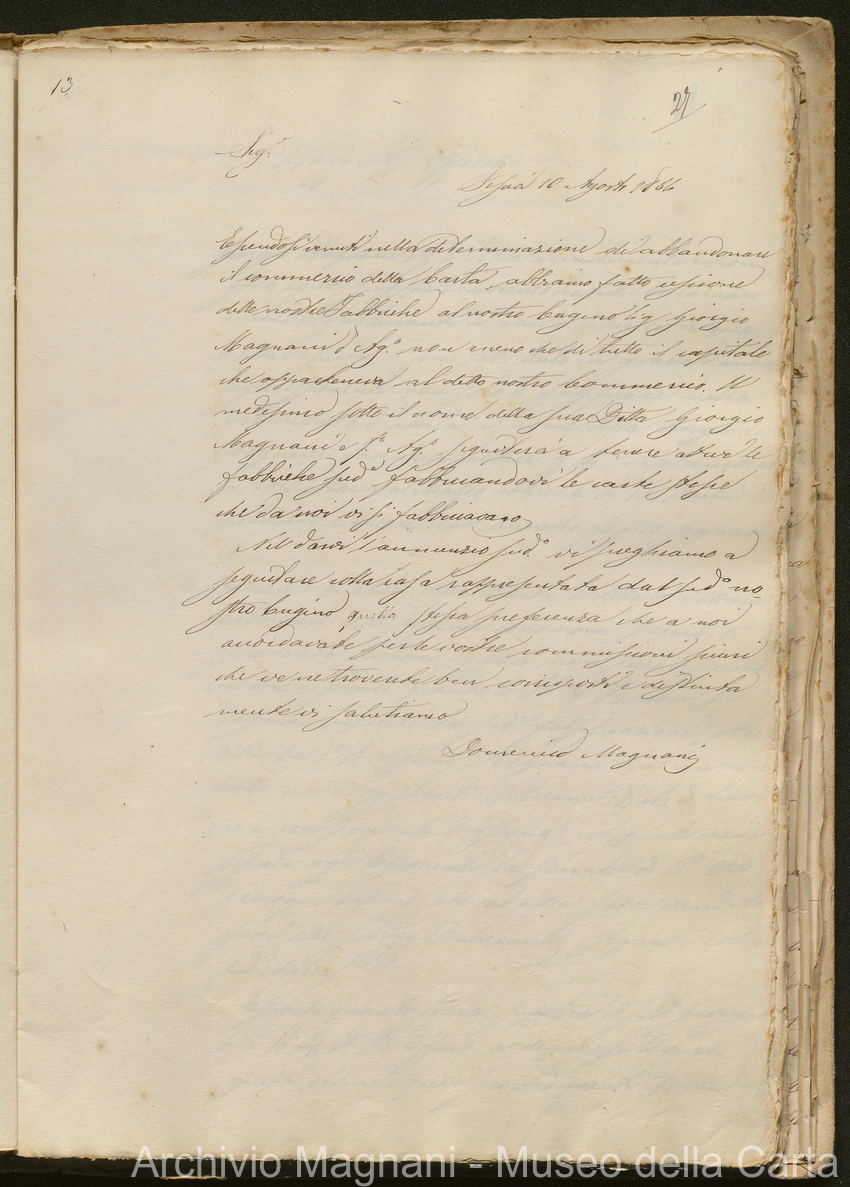 13
27
Sig.r
Pescia 10 Agosto 1856
Essendosi venuti nella determinazione di abbandonare
il commercio della Carta, abbiamo fatto cessione
delle nostre Fabbriche al nostro Cugino Sig Giorgio
Magnani d'Ag.o non meno che di tutto il capitale
che apparteneva al detto nostro Commercio. Il
medesimo sotto il nome della sua Ditta Giorgio
Magnani e f.o Ag.o seguiterà a tenere attive le
fabbriche sud.e fabbricandovi le carte stesse
che da noi vi si fabbricavano
Nel darvi l'annunzio sud.o vi preghiamo a
seguitare colla casa rappresentata dal sud.o no-
stro Cugino quella stessa preferenza che a noi
accordavate per le vostre commissioni sicuri
che ve ne troverete ben corrisposti e distinta
mente vi salutiamo
Domenico Magnani
Archivio Magnani - Museo della Carta